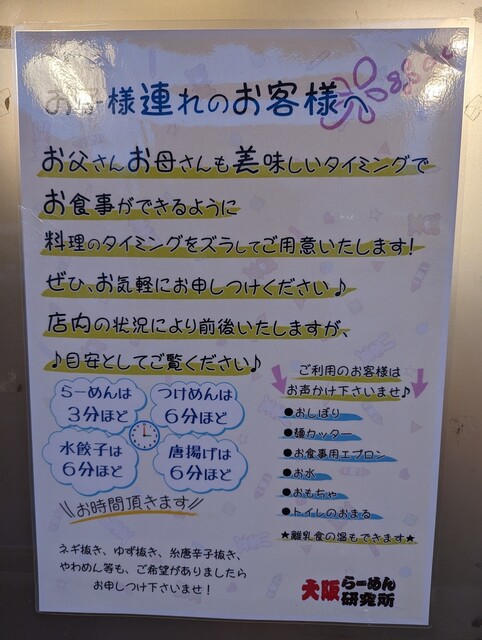 お子様連れのお客様へ
お父さんお母さんも美味しいタイミングで
お食事ができるように
料理のタイミングをズラしてご用意いたします!
ぜひ、お気軽にお申しつけください♪
店内の状況により前後いたしますが、
♪目安としてご覧ください♪
らーめんは
3分ほど
つけめんは
6分ほど
水餃子は
6分ほど
唐揚げは
6分ほど
\\お時間頂きます//
ご利用のお客様は
お声かけ下さいませ♪
●おしぼり
●麺カッター
●お食事用エプロン
●お水
●おもちゃ
●トイレのおまる
★離乳食の温もできます★
ネギ抜き、ゆず抜き、糸唐辛子抜き、
やわめん等も、ご希望がありましたら
お申しつけ下さいませ!
大阪らーめん
研究所